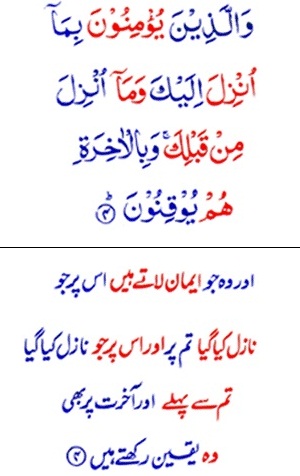 وَالَّذِيْنَ يُؤْمِنُوْنَ بِمَاۤ
اُنْزِلَ اِلَيْكَ وَمَاۤ اُنْزِلَ
مِنْ قَبْلِكَ ۚ وَبِالْاٰخِرَةِ
هُمْ يُوْقِنُوْنَ ؕ ﴿۴﴾
اور وہ جو ایمان لاتے ہیں اس پر جو
نازل کیا گیا تم پر اور اس پر جو نازل کیا گیا
تم سے پہلے اور آخرت پر بھی
وہ یقین رکھتے ہیں ﴿۴﴾